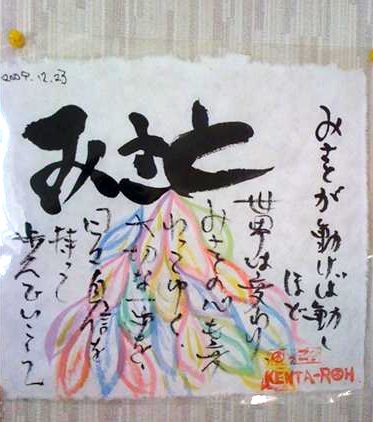 2009.12.23
みさと
みさとが動けば動く
ほど
世界は変わり
みさとの心も変
わってゆく
大切な一歩を、
自信を
持って
歩んでいこう
KENTA-ROH